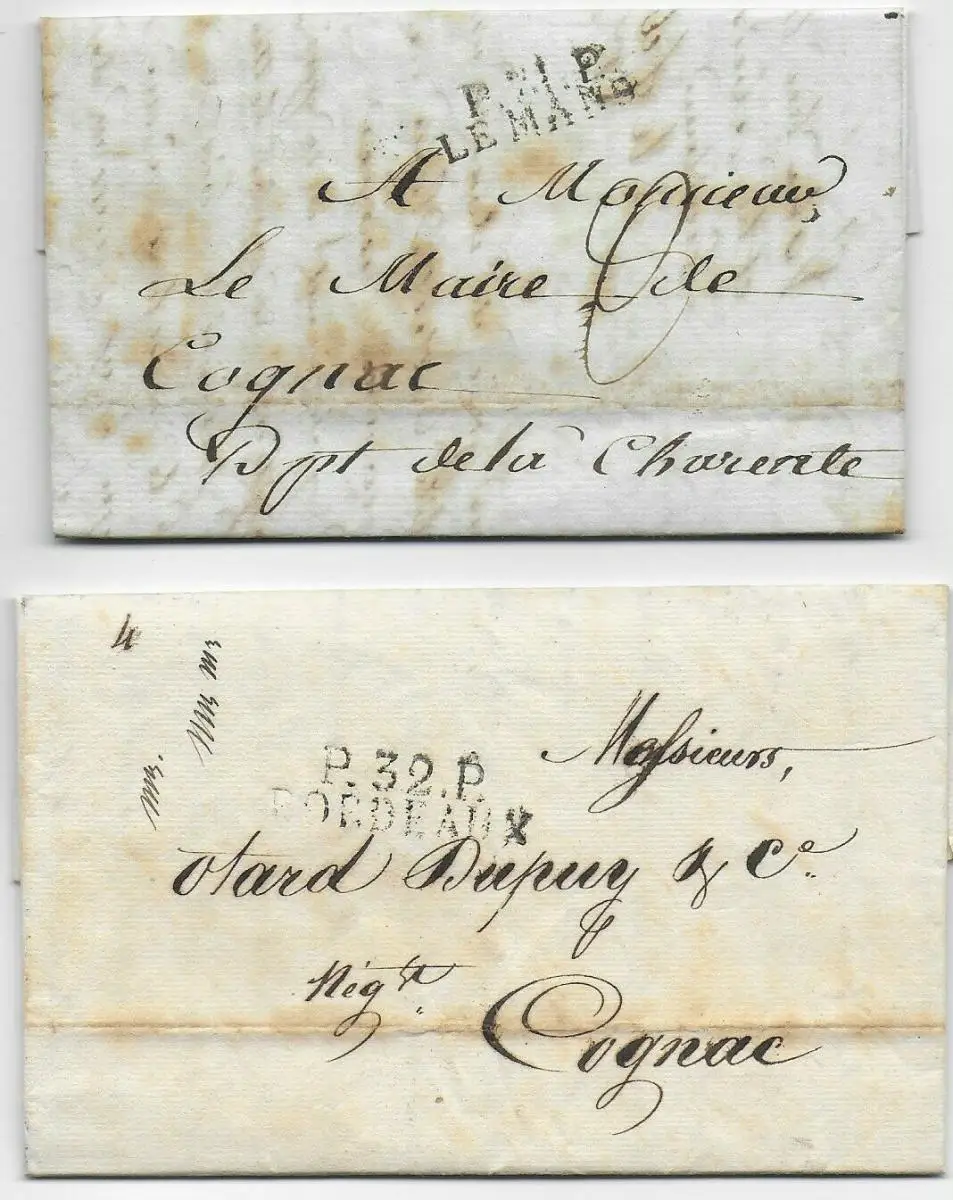 P. P.
LE MANS
A Monsieur
Le Maire de
Cognac
Dpt de la Charente
4
P.32.P.
BORDEAUX
Messieurs,
Otard Dupuy & Ce.
Négts.
Cognac